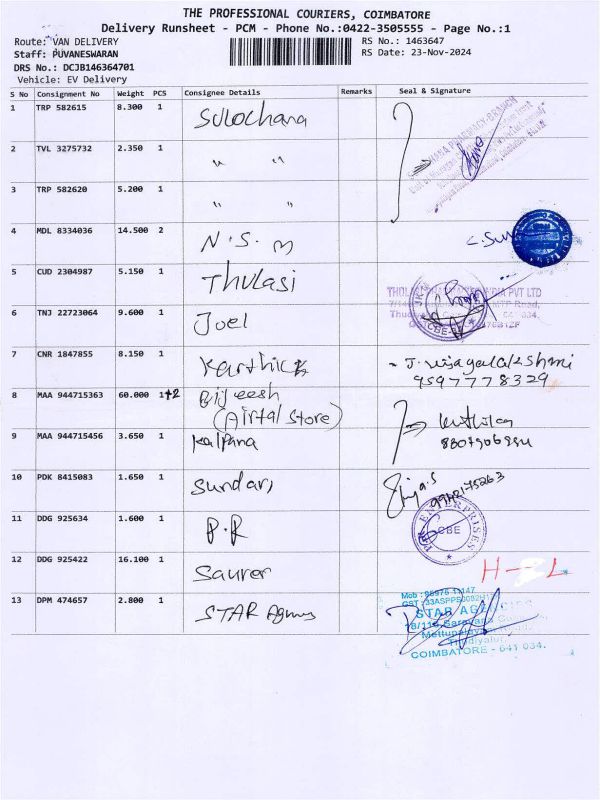 THE PROFESSIONAL COURIERS, COIMBATORE
Delivery Runsheet - PCM - Phone No.:0422-3505555 - Page No.:1
Route: VAN DELIVERY RS No.: 1463647
Staff: PUVANESWARAN RS Date: 23-Nov-2024
DRS No.: DCJB146364701
Vehicle: EV Delivery
S No Consignment No Weight PCS Consignee Details Remarks Seal & Signature
1 TRP 582615 8.300 1 Sulochana
2 TVL 3275732 2.350 1 " "
3 TRP 582620 5.200 1 " "
4 MDL 8334036 14.500 2 N.S.M
5 CUD 2304987 5.150 1 Thulasi
THULASI INDIA PVT LTD
6 TNJ 22723064 9.600 1 Joel
7 CNR 1847855 8.150 1 Karthick J. Vijayalakshmi
9597778329
8 MAA 944715363 60.000 1+2 Bijeesh
(Airtal Store)
9 MAA 944715456 3.650 1 Kalpana
10 PDK 8415083 1.650 1 Sundari
11 DDG 925634 1.600 1 P.R
ENTERPRISES
CBE
12 DDG 925422 16.100 1 Saurer
13 DPM 474657 2.800 1 STAR Agency
STAR AGENCIES
COIMBATORE - 641 034.